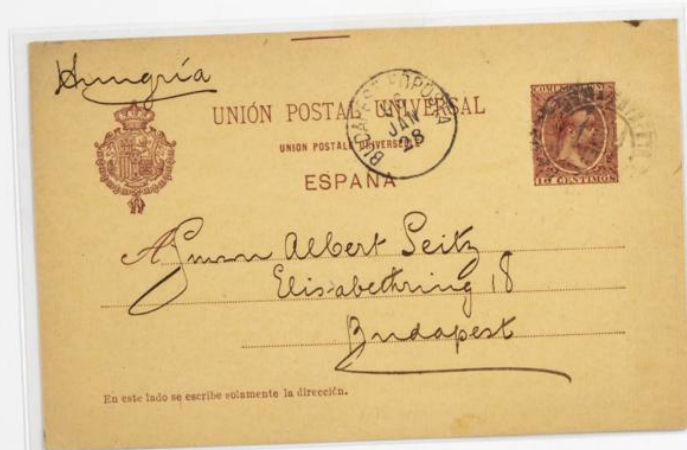 Hungría
UNIÓN POSTAL UNIVERSAL
UNION POSTALE UNIVERSELLE
ESPAÑA
BUDAPEST FŐPOSTA
JAN
28
COMUNICACIONES
10 CENTIMOS
A Albert Seitz
Elisabethring 18
Budapest
En este lado se escribe solamente la dirección.